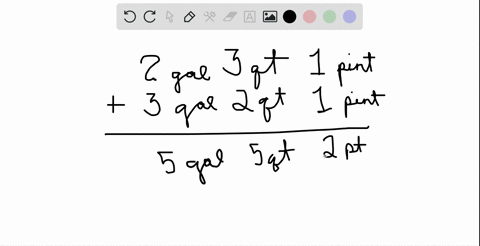 2 gal 3 qt 1 pint
+ 3 gal 2 qt 1 pint
5 gal 5 qt 2 pt